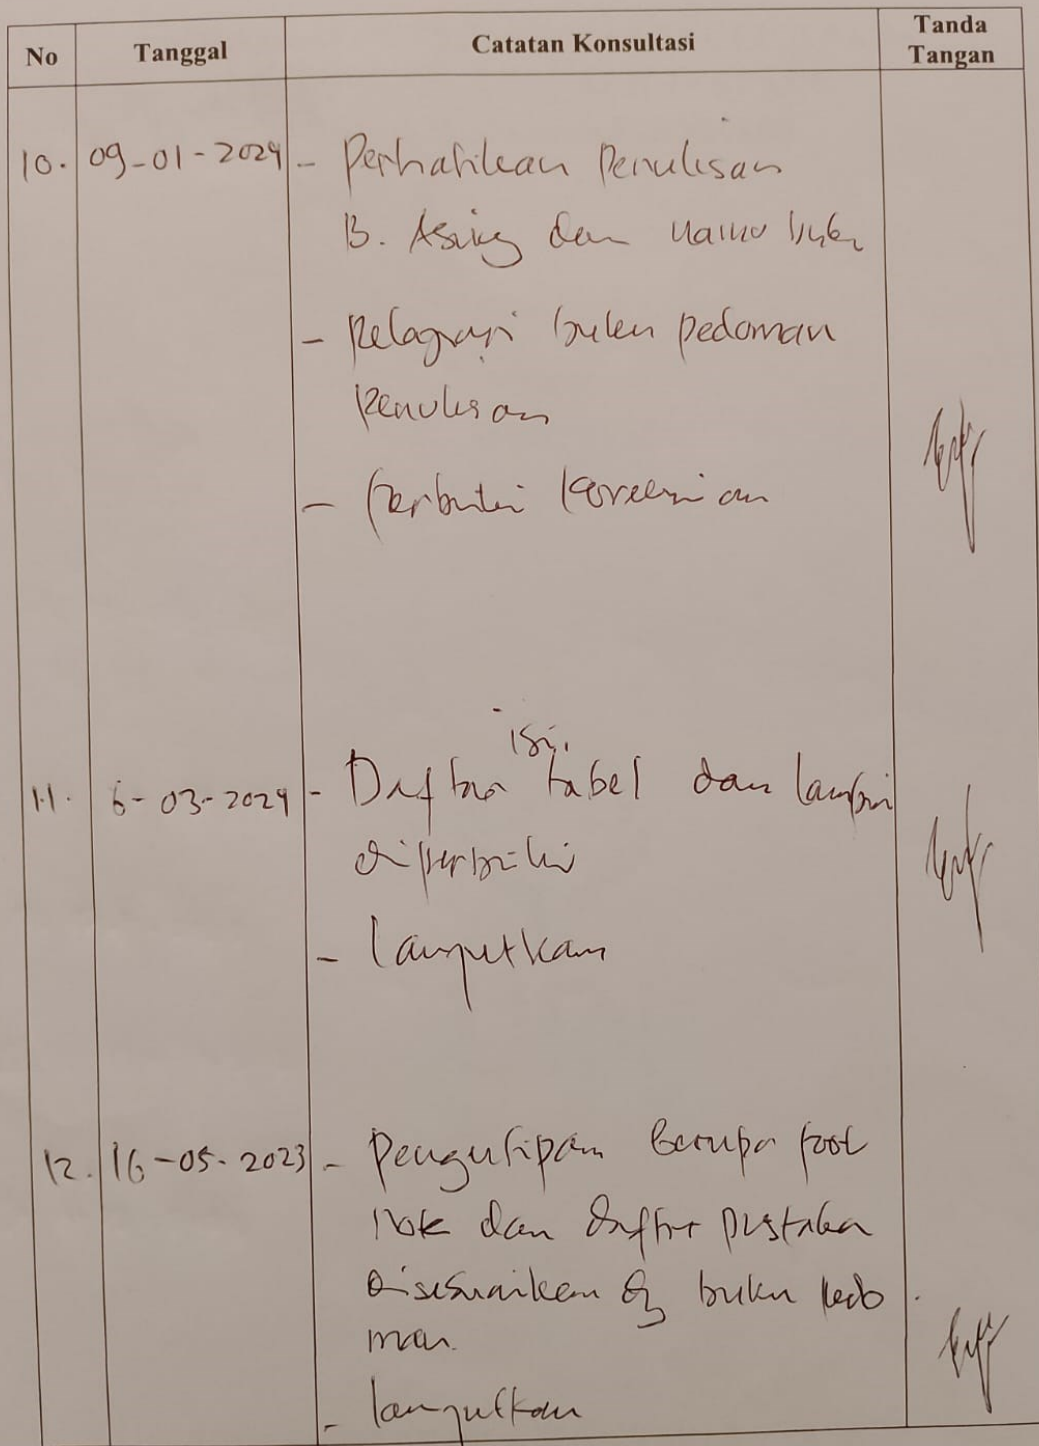 No Tanggal Catatan Konsultasi Tanda Tangan
10. 09-01-2024 - Perhatikan Penulisan
B. Asing dan nama buku
- Pelajari buku pedoman
Penulisan
- Perbaiki
11. 6-03-2024 - Daftar isi, tabel dan
diperbaiki
- lanjutkan
12. 16-05-2023 - Pengutipan berupa foot
note dan daftar pustaka
disesuaikan dg buku pedo
man.
- lanjutkan